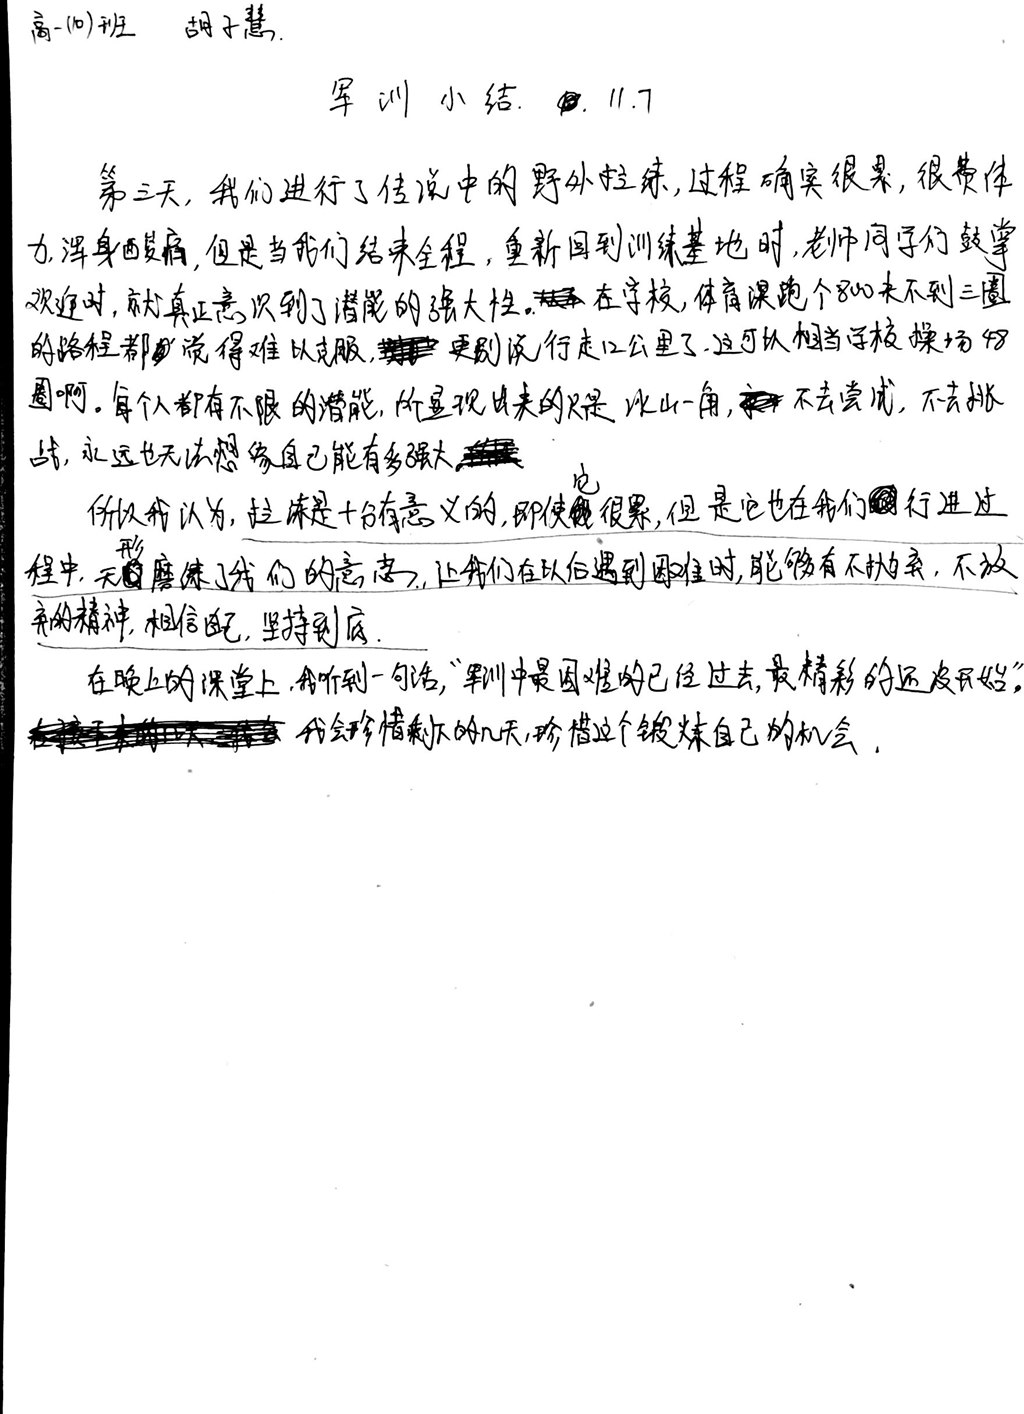 高一(10)班 胡子慧.
军训小结. 11.7
第三天，我们进行了传说中的野外拉练，过程确实很累，很费体
力，浑身酸痛，但是当我们结束全程，重新回到训练基地时，老师同学们鼓掌
欢迎时，就真正意识到了潜能的强大性。在学校，体育课跑个800米不到三圈
的路程都说得难以克服，更别说行走12公里了.这可以相当学校操场48
圈啊。每个人都有不限的潜能，所显现出来的只是冰山一角，不去尝试，不去挑
战，永远也无法想像自己能有多强大。
所以我认为，拉练是十分有意义的，即使它很累，但是它也在我们行进过
程中，无形磨练了我们的意志，让我们在以后遇到困难时，能够有不抛弃，不放
弃的精神，相信自己，坚持到底.
在晚上的课堂上，我听到一句话，“军训中最困难的已经过去，最精彩的还没开始”。
我会珍惜剩下的几天，珍惜这个锻炼自己的机会.